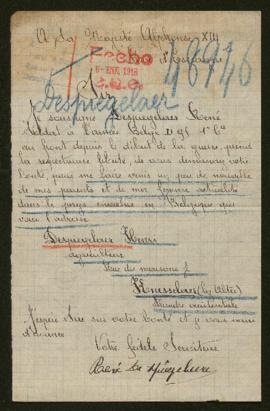 A Sa Majesté Alphonse XIII
d'Espagne
Fecha
6 - ENE. 1918
48946
Sire
Despiegelaer
Je soussigné Despiegelaere René
soldat à l'armée Belge D 91 1e Cie
au front depuis le début de la guerre, prend
la respectueuse liberté, de vous demander votre
bonté pour me faire venir un peu de nouvelle
de mes parents et de mes
dans le pays envahis en Belgique que
voici l'adresse
Despiegelaere Henri
agriculteur
Rue de
Knesselaere (lez Aeltre)
Flandre occidentale
J'espère Sire sur votre bonté et je vous remercie
d'avance
Votre fidèle Serviteur
René De Spiegelaere